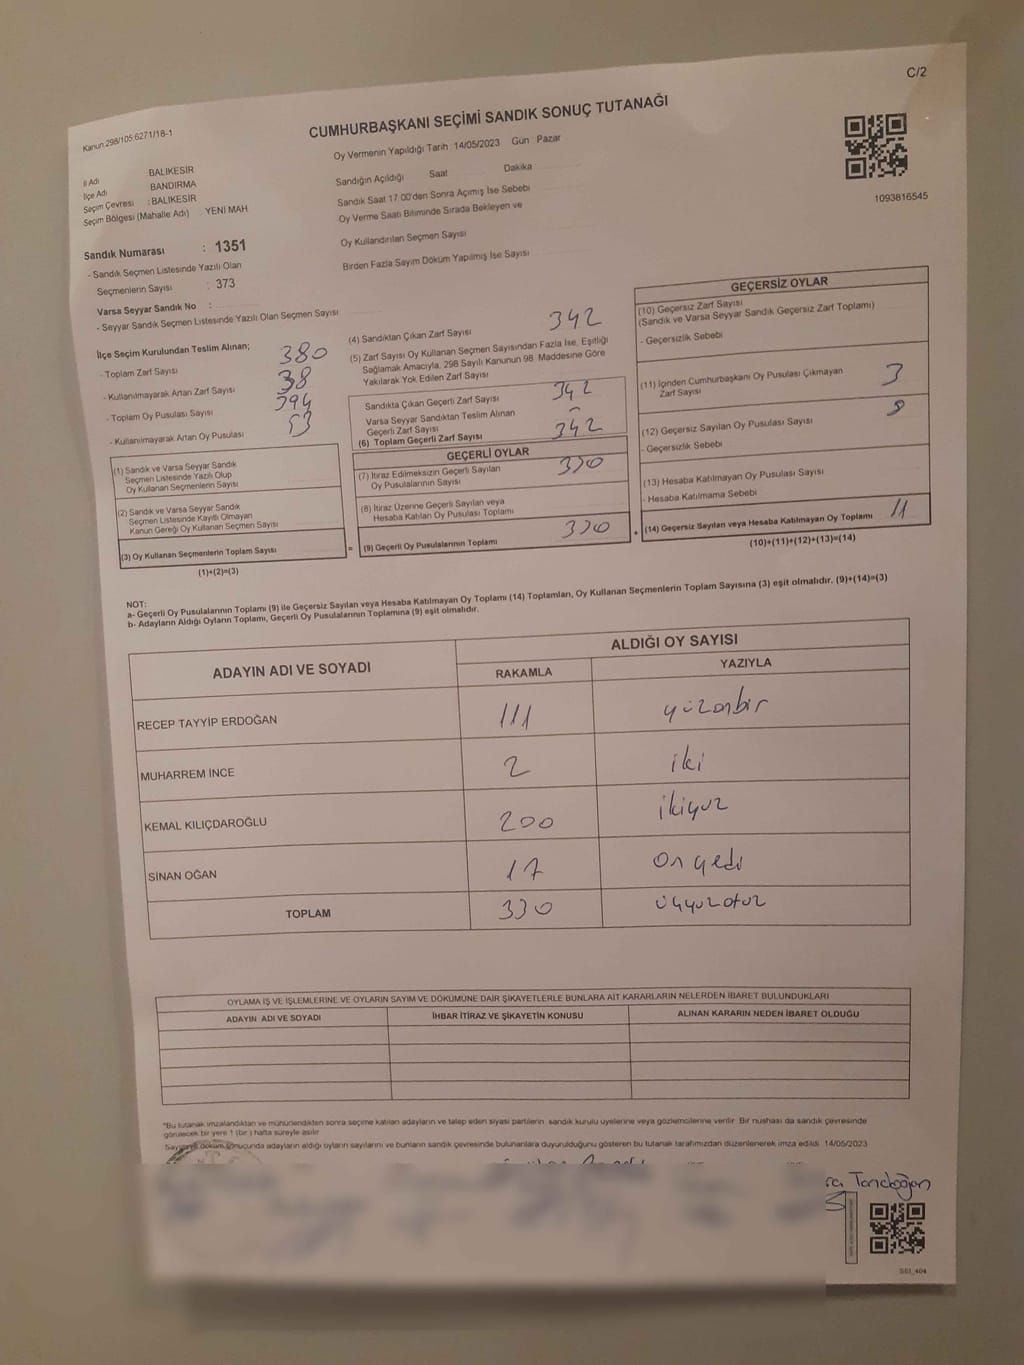 C/2
Kanun 298/105 6271/18-1
CUMHURBAŞKANI SEÇİMİ SANDIK SONUÇ TUTANAĞI
Oy Vermenin Yapıldığı Tarih : 14/05/2023 Gün : Pazar
İl Adı BALIKESİR
İlçe Adı BANDIRMA
Seçim Çevresi : BALIKESİR
Seçim Bölgesi (Mahalle Adı) : YENİ MAH
Sandığın Açıldığı Saat Dakika
Sandık Saat 17.00'den Sonra Açımış İse Sebebi
Oy Verme Saati Bitiminde Sırada Bekleyen ve
Oy Kullandırılan Seçmen Sayısı
Birden Fazla Sayım Döküm Yapılmış İse Sayısı
1093816545
Sandık Numarası : 1351
- Sandık Seçmen Listesinde Yazılı Olan
Seçmenlerin Sayısı : 373
Varsa Seyyar Sandık No :
- Seyyar Sandık Seçmen Listesinde Yazılı Olan Seçmen Sayısı
İlçe Seçim Kurulundan Teslim Alınan;
- Toplam Zarf Sayısı 380
- Kullanılmayarak Artan Zarf Sayısı 38
- Toplam Oy Pusulası Sayısı 394
- Kullanılmayarak Artan Oy Pusulası 53
(1) Sandık ve Varsa Seyyar Sandık
Seçmen Listesinde Yazılı Olup
Oy Kullanan Seçmenlerin Sayısı
(2) Sandık ve Varsa Seyyar Sandık
Seçmen Listesinde Kayıtlı Olmayan
Kanun Gereği Oy Kullanan Seçmen Sayısı
(3) Oy Kullanan Seçmenlerin Toplam Sayısı
(1)+(2)=(3)
(4) Sandıktan Çıkan Zarf Sayısı 342
(5) Zarf Sayısı Oy Kullanan Seçmen Sayısından Fazla İse, Eşitliği
Sağlamak Amacıyla, 298 Sayılı Kanunun 98. Maddesine Göre
Yakılarak Yok Edilen Zarf Sayısı
Sandıkta Çıkan Geçerli Zarf Sayısı 342
Varsa Seyyar Sandıktan Teslim Alınan
Geçerli Zarf Sayısı -
(6) Toplam Geçerli Zarf Sayısı 342
GEÇERLİ OYLAR
(7) İtiraz Edilmeksizin Geçerli Sayılan
Oy Pusulalarının Sayısı 330
(8) İtiraz Üzerine Geçerli Sayılan veya
Hesaba Katılan Oy Pusulası Toplamı
= (9) Geçerli Oy Pusulalarının Toplamı 330
GEÇERSİZ OYLAR
(10) Geçersiz Zarf Sayısı
(Sandık ve Varsa Seyyar Sandık Geçersiz Zarf Toplamı)
- Geçersizlik Sebebi
(11) İçinden Cumhurbaşkanı Oy Pusulası Çıkmayan
Zarf Sayısı 3
(12) Geçersiz Sayılan Oy Pusulası Sayısı 8
- Geçersizlik Sebebi
(13) Hesaba Katılmayan Oy Pusulası Sayısı
- Hesaba Katılmama Sebebi
+ (14) Geçersiz Sayılan veya Hesaba Katılmayan Oy Toplamı 11
(10)+(11)+(12)+(13)=(14)
NOT:
a- Geçerli Oy Pusulalarının Toplamı (9) ile Geçersiz Sayılan veya Hesaba Katılmayan Oy Toplamı (14) Toplamları, Oy Kullanan Seçmenlerin Toplam Sayısına (3) eşit olmalıdır. (9)+(14)=(3)
b- Adayların Aldığı Oyların Toplamı, Geçerli Oy Pusulalarının Toplamına (9) eşit olmalıdır.
ADAYIN ADI VE SOYADI ALDIĞI OY SAYISI
RAKAMLA YAZIYLA
RECEP TAYYİP ERDOĞAN 111 yüzonbir
MUHARREM İNCE 2 iki
KEMAL KILIÇDAROĞLU 200 ikiyuz
SİNAN OĞAN 17 on yedi
TOPLAM 330 üçyuzotuz
OYLAMA İŞ VE İŞLEMLERİNE VE OYLARIN SAYIM VE DÖKÜMÜNE DAİR ŞİKAYETLERLE BUNLARA AİT KARARLARIN NELERDEN İBARET BULUNDUKLARI
ADAYIN ADI VE SOYADI İHBAR İTİRAZ VE ŞİKAYETİN KONUSU ALINAN KARARIN NEDEN İBARET OLDUĞU
*Bu tutanak imzalandıktan ve mühürlendikten sonra seçime katılan adayların ve talep eden siyasi partilerin sandık kurulu üyelerine veya gözlemcilerine verilir. Bir nüshası da sandık çevresinde
görülecek bir yere 1 (bir) hafta süreyle asılır
Sayım ve döküm sonucunda adayların aldığı oyların sayılarını ve bunların sandık çevresinde bulunanlara duyurulduğunu gösteren bu tutanak tarafımızdan düzenlenerek imza edildi. 14/05/2023
Tandoğan